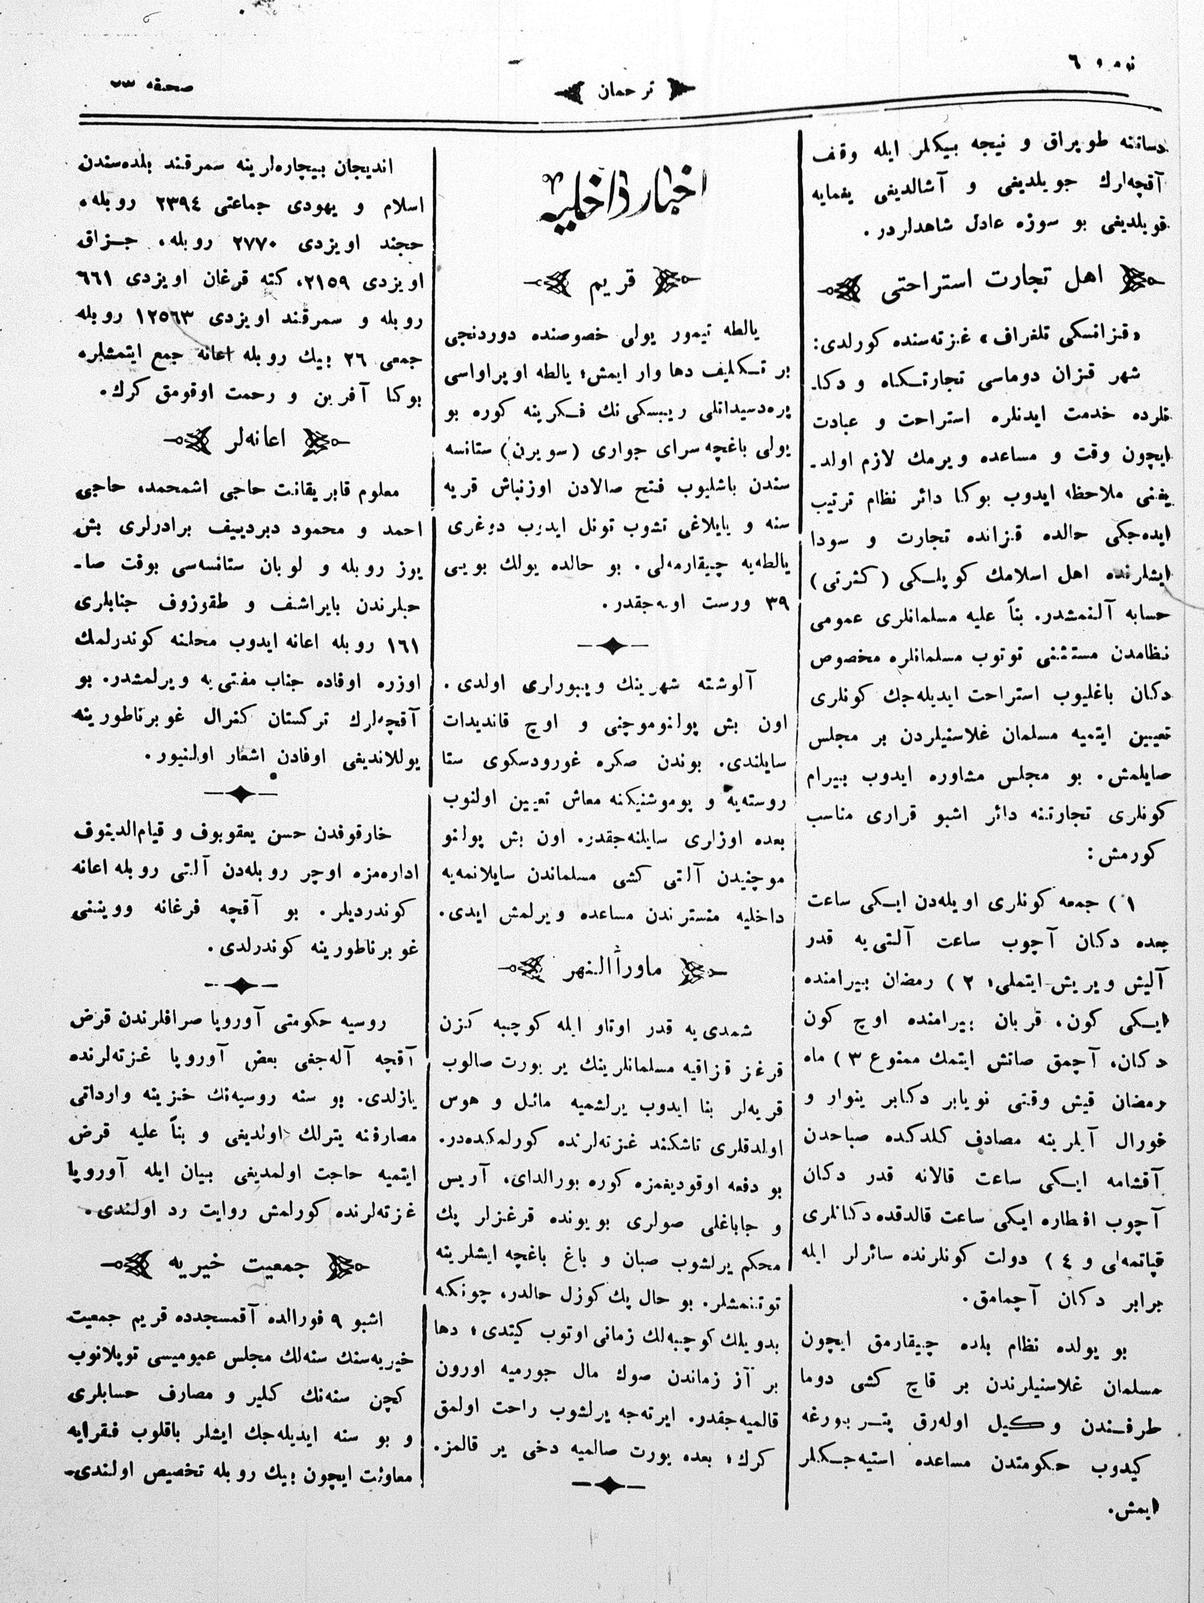 نومرو ٦
ترجمان
صحیفه ٢٣
دساتنه طوپراق و نیجه بیكلر ایله وقف
آقچه‌لرك جویلدیغی و آشالدیغی یغمایه
قویلدیغی بو سوزه عادل شاهدلردر.
اهل تجارت استراحتی
«قزانسكی تلغراف» غزته‌سنده كورلدی:
شهر قزان دوماسی تجارتكاه و دكا-
نلرده خدمت ایدنلره استراحت و عبادت
ایچون وقت و مساعده ویرمك لازم اولد-
یغنی ملاحظه ایدوب بوكا دائر نظام ترتیب
ایده‌جكی حالده قزانده تجارت و سودا
ایشلرنده اهل اسلامك كوپلكی (كثرتی)
حسابه آلنمشدر. بناً علیه مسلمانلری عمومی
نظامدن مستثنی توتوب مسلمانلره مخصوص
دكان باغلیوب استراحت ایدیله‌جك كونلری
تعیین ایتمیه مسلمان غلاسنیلردن بر مجلس
صایلمش. بو مجلس مشاوره ایدوب بیرام
كونلری تجارتنه دائر اشبو قراری مناسب
كورمش:
١) جمعه كونلری اویله‌دن ایكی ساعت
بعده دكان آچوب ساعت آلتی‌یه قدر
آلیش ویریش ایتملی؛ ٢) رمضان بیرامنده
ایكی كون، قربان بیرامنده اوچ كون
دكان، آچمق صاتش ایتمك ممنوع ٣) ماه
رمضان قیش وقتی نویابر دكابر ینوار و
فورال آیلرینه مصادف كلدكده صباحدن
آقشامه ایكی ساعت قالانه قدر دكان
آچوب افطاره ایكی ساعت قالدقده دكانلری
قپاتمه‌لی و ٤) دولت كونلرنده سائرلر ایله
برابر دكان آچمامق.
بو یولده نظام بلده چیقارمق ایچون
مسلمان غلاسنیلرندن بر قاچ كشی دوما
طرفندن وكیل اوله‌رق پتربورغه
كیدوب حكومتدن مساعده استیه‌جكلر
ایمش.
اخبار داخلیه
قریم
یالطه تیمور یولی خصوصنده دوردنجی
بر تكلیف دها وار ایمش؛ یالطه اوپراواسی
پره‌دسیداتلی ریبسكی‌نك فكرینه كوره بو
یولی باغچه سرای جواری (سویرن) ستانسه
سندن باشلیوب فتح صالادن اوزنباش قریه
سنه و یایلاغی تشوب تونل ایدوب دوغری
یالطه‌یه چیقارمه‌لی. بو حالده یولك بویی
٣٩ ورست اوله‌جقدر.
آلوشته شهرینك ویبورلری اولدی.
اون بش پولنوموچنی و اوچ قاندیدات
سایلندی. بوندن صكره غورودسكوی ستا
روسته‌یه و پوموشنیكنه معاش تعیین اولنوب
بعده اوزلری سایلنه‌جقدر. اون بش پولنو
موچنیدن آلتی كشی مسلماندن سایلانمه‌یه
داخلیه منسترندن مساعده ویرلمش ایدی.
ماورآالنهر
شمدی‌یه قدر اوتاو ایله كوچبه كزن
قرغز قزاقیه مسلمانلرینك یر یورت صالوب
قریه‌لر بنا ایدوب یرلشمیه مائل و هوس
اولدقلری تاشكند غزته‌لرنده كورلمكده‌در.
بو دفعه اوقودیغمزه كوره بورالدای، آریس
و جاباغلی صولری بوینده قرغزلر پك
محكم یرلشوب صبان و باغ باغچه ایشلرینه
توتنمشلر. بو حال پك كوزل حالدر، چونكه
بدویلك كوچبه‌لك زمانی اوتوب كیتدی؛ دها
بر آز زماندن صوك مال جورمیه اورون
قالمیه‌جقدر. ایرته‌جه یرلشوب راحت اولمق
كرك؛ بعده یورت صالمیه دخی یر قالمز.
اندیجان بیچاره‌لرینه سمرقند بلده‌سندن
اسلام و یهودی جماعتی ٢٣٩٤ روبله،
حجند اویزدی ٢٧٧٠ روبله، جزاق
اویزدی ٢١٥٩، كته قرغان اویزدی ٦٦١
روبله و سمرقند اویزدی ١٢٥٦٣ روبله
جمعی ٢٦ بیك روبله اعانه جمع ایتمشلره
بوكا آفرین و رحمت اوقومق كرك.
اعانه‌لر
معلوم فابریقانت حاجی اشمحمد، حاجی
احمد و محمود دبردییف برادرلری بش
یوز روبله و لوبان ستانسه‌سی بوفت صا-
حبلرندن بایراشف و طقوزوف جنابلری
١٦١ روبله اعانه ایدوب محلنه كوندرلمك
اوزره اوفاده جناب مفتی‌یه ویرلمشدر. بو
آقچه‌لرك تركستان كنرال غوبرناطورینه
یوللاندیغی اوفادن اشعار اولنیور.
خارقوفدن حسن یعقوبوف و قیام‌الدینوف
اداره‌مزه اوچر روبله‌دن آلتی روبله اعانه
كوندردیلر. بو آقچه فرغانه وویننی
غوبرناطورینه كوندرلدی.
روسیه حكومتی آوروپا صرافلرندن قرض
آقچه آله‌جغی بعض آوروپا غزته‌لرنده
یازلدی. بو سنه روسیه‌نك خزینه وارداتی
مصارفنه یترلك اولدیغی و بناً علیه قرض
ایتمیه حاجت اولمدیغی بیان ایله آوروپا
غزته‌لرنده كورلمش روایت رد اولندی.
جمعیت خیریه
اشبو ٩ فورالده آقمسجدده قریم جمعیت
خیریه‌سنك سنه‌لك مجلس عمومیسی توپلانوب
كچن سنه‌نك كلیر و مصارف حسابلری
و بو سنه ایدیله‌جك ایشلر باقلوب فقرایه
معاونت ایچون بیك روبله تخصیص اولندی.